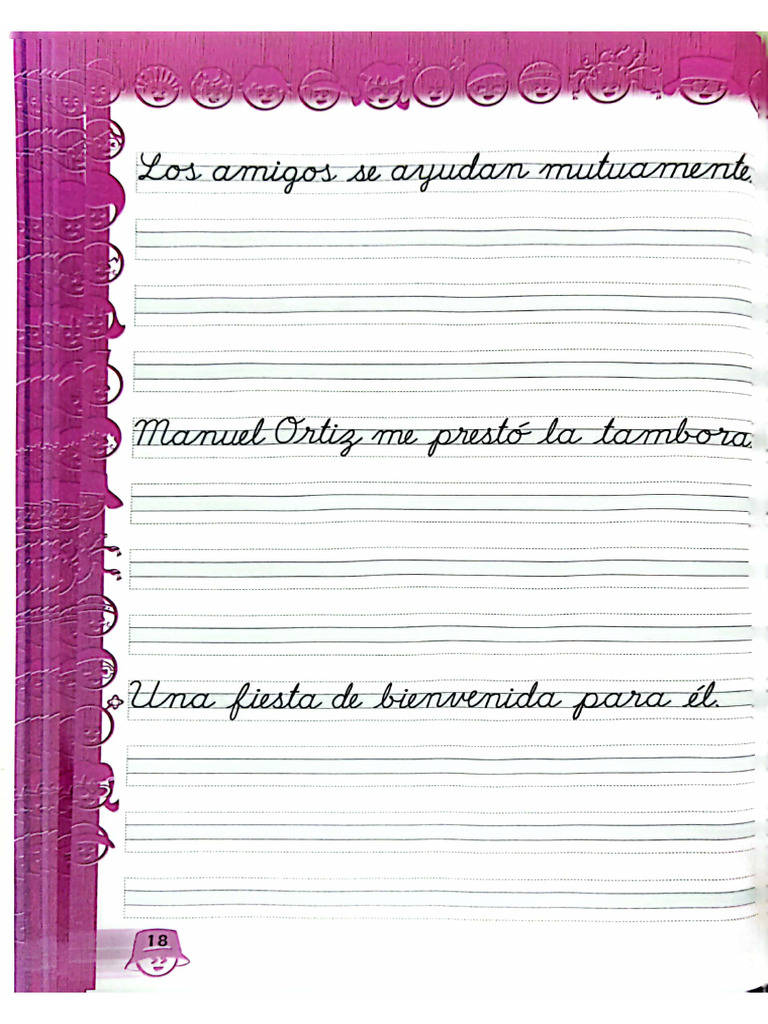 Los amigos se ayudan mutuamente.
Manuel Ortiz me prestó la tambora.
Una fiesta de bienvenida para él.
18